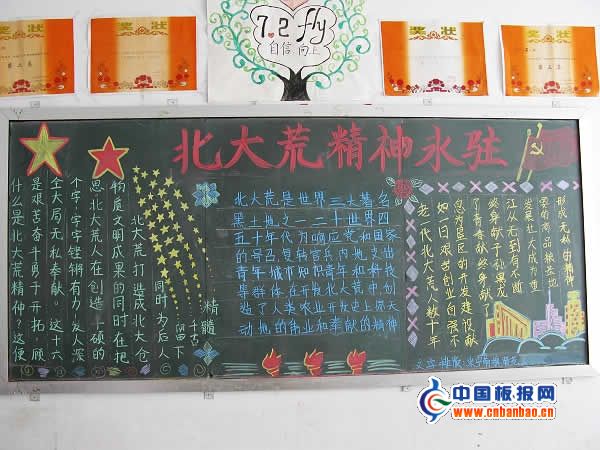 奖状
奖状
7.2 fly
自信 向上
奖状
奖状
北大荒精神永驻
什么是北大荒精神?这便
是艰苦奋斗勇于开拓,顾
全大局无私奉献。这十六
个字,字字铿锵有力,发人深
思北大荒人在创造一硕的
物质文明成果的同时在把
北大荒打造成北大仓
同时为后人
留下
千古
精髓
北大荒是世界三大著名
黑土地之一二十世纪四
五十年代为响应党和国家
的号召复转官兵内地支边
青年城市知识青年和科技
等群体在开发北大荒中创
造了人类农业开发史上惊天
动地的伟业和奉献的精神
老一代北大荒人数十年
如一日艰苦创业自强不
息为垦区的开发建设献
了青春献终身献了
终身献子孙
江从无到有不断
发展壮大成为重
要的商品粮基地
形成无私的精神
中国板报网
www.cnbanbao.cn